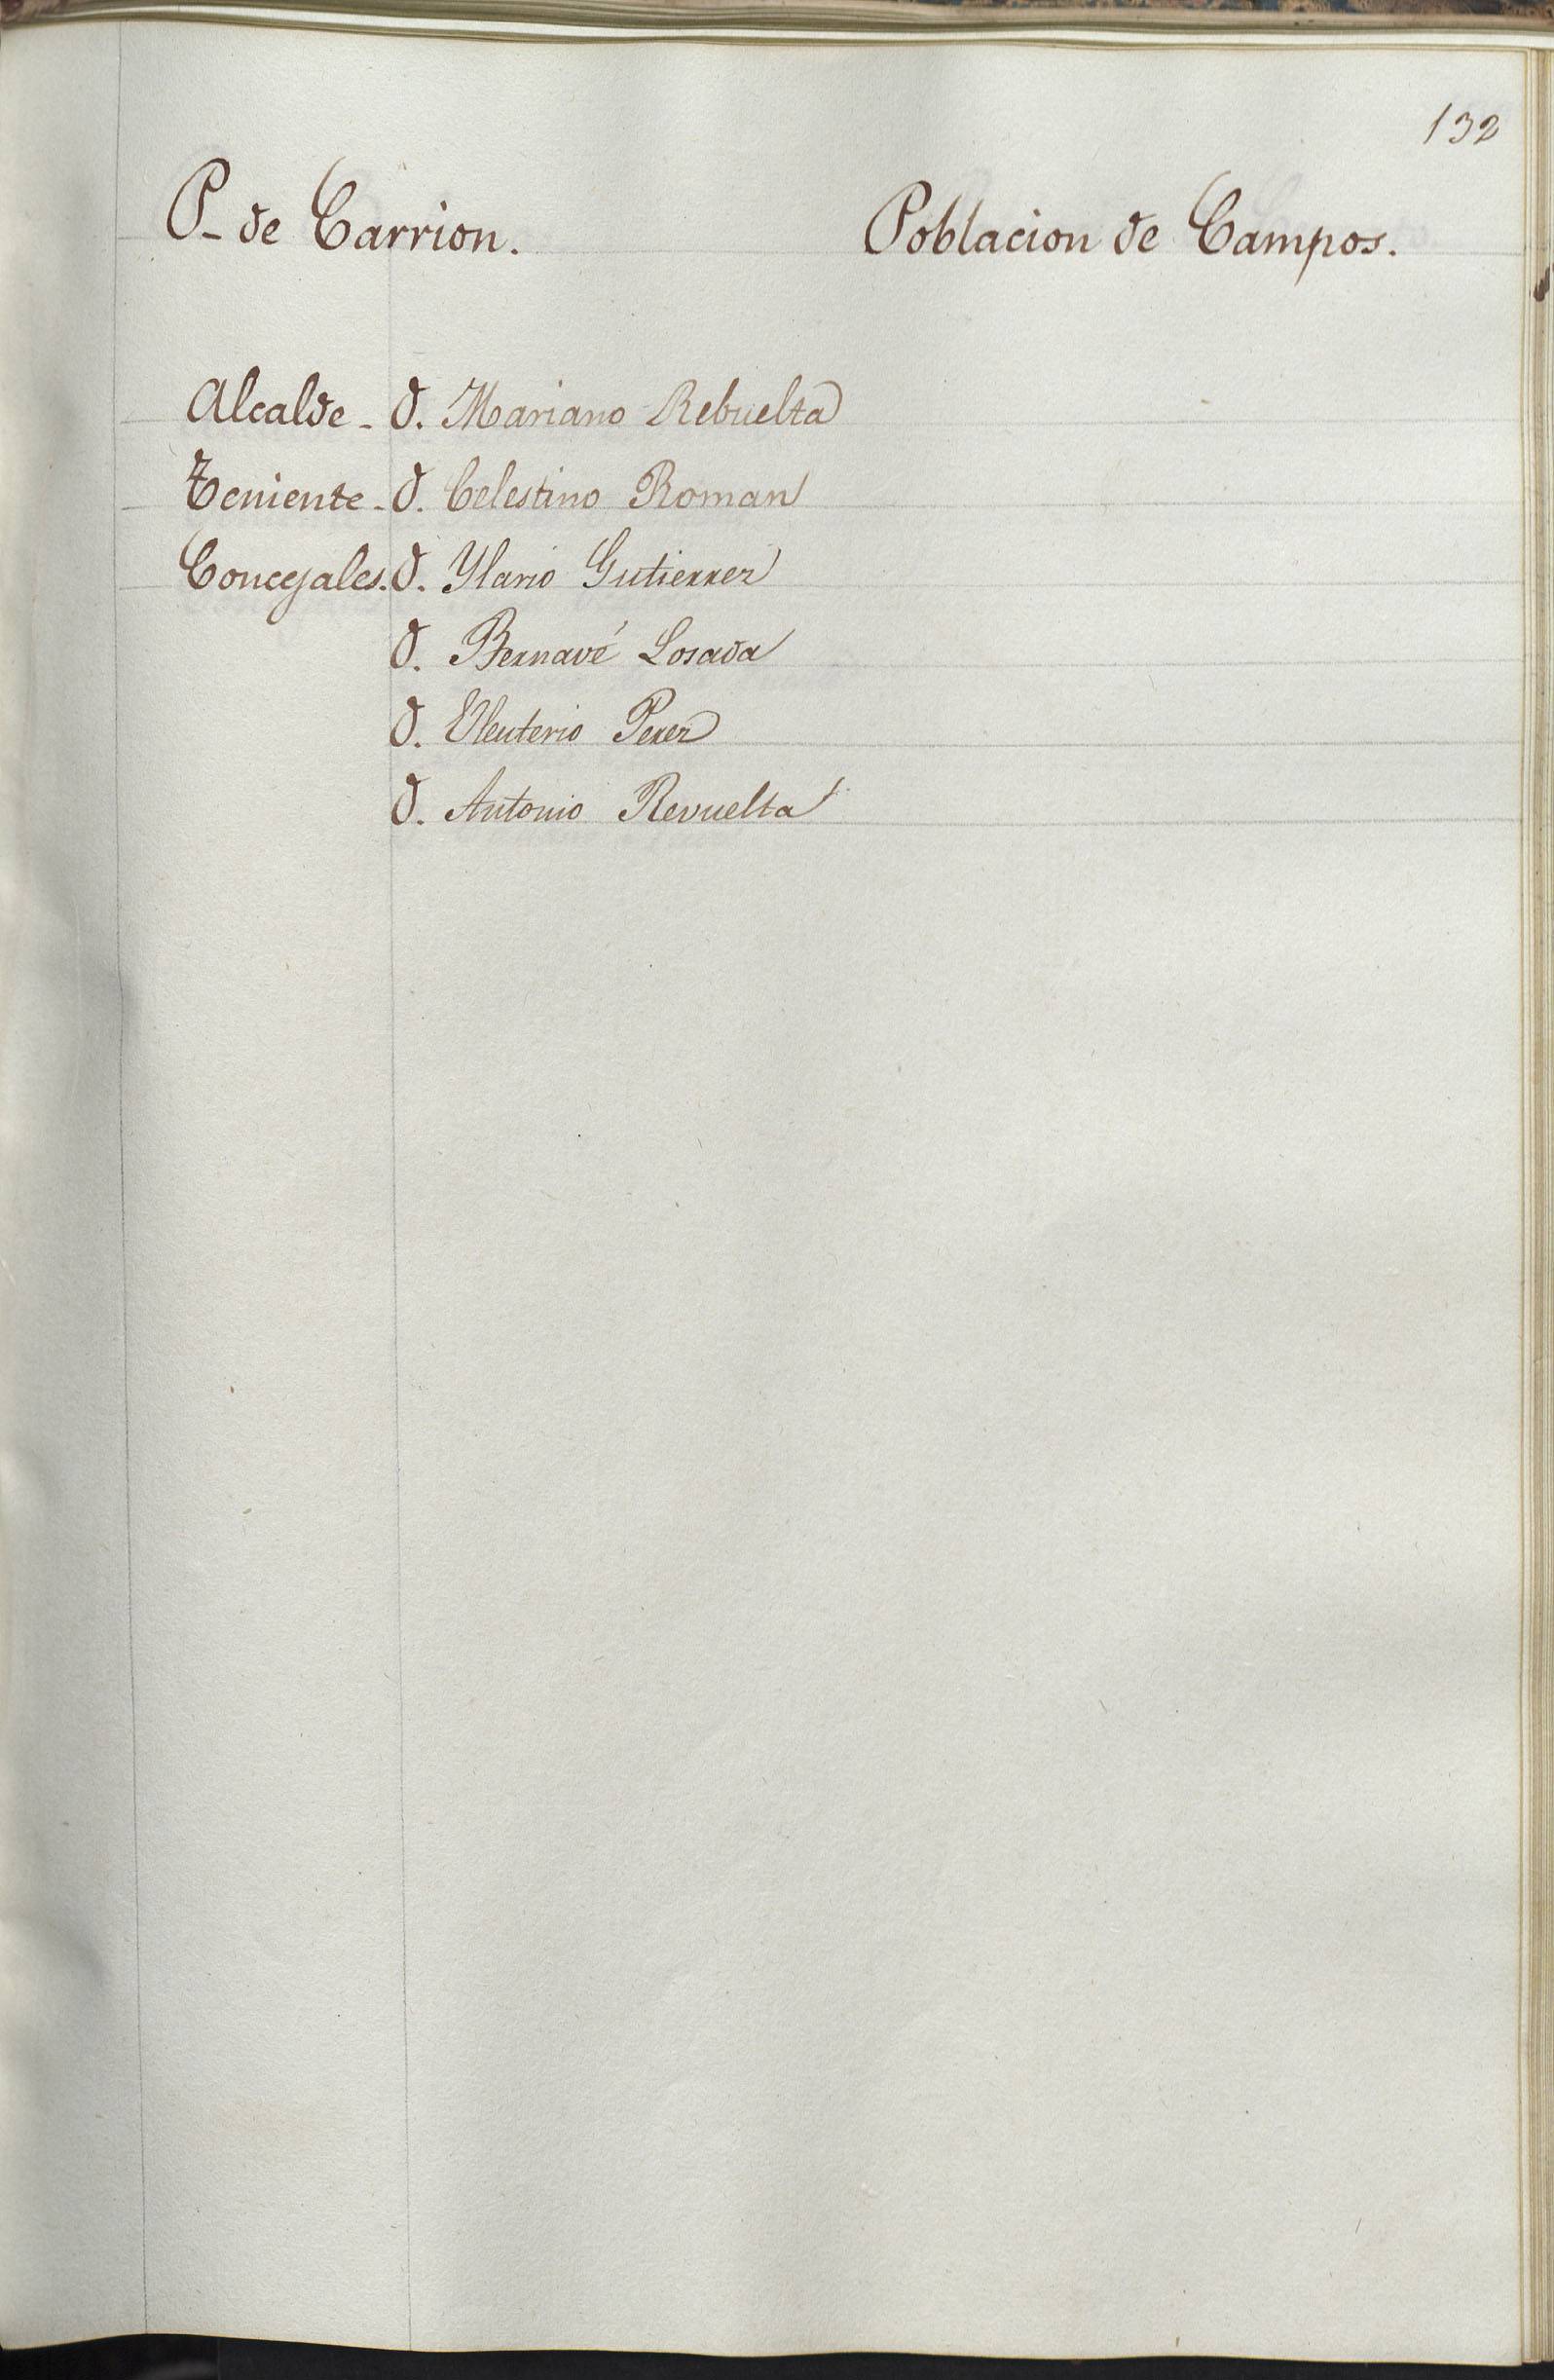 132
P- de Carrion. Poblacion de Campos.
Alcalde - D. Mariano Rebuelta
Teniente - D. Celestino Roman
Concejales. D. Ylario Gutierrez
D. Bernavé Losada
D. Eleuterio Perez
D. Antonio Revuelta